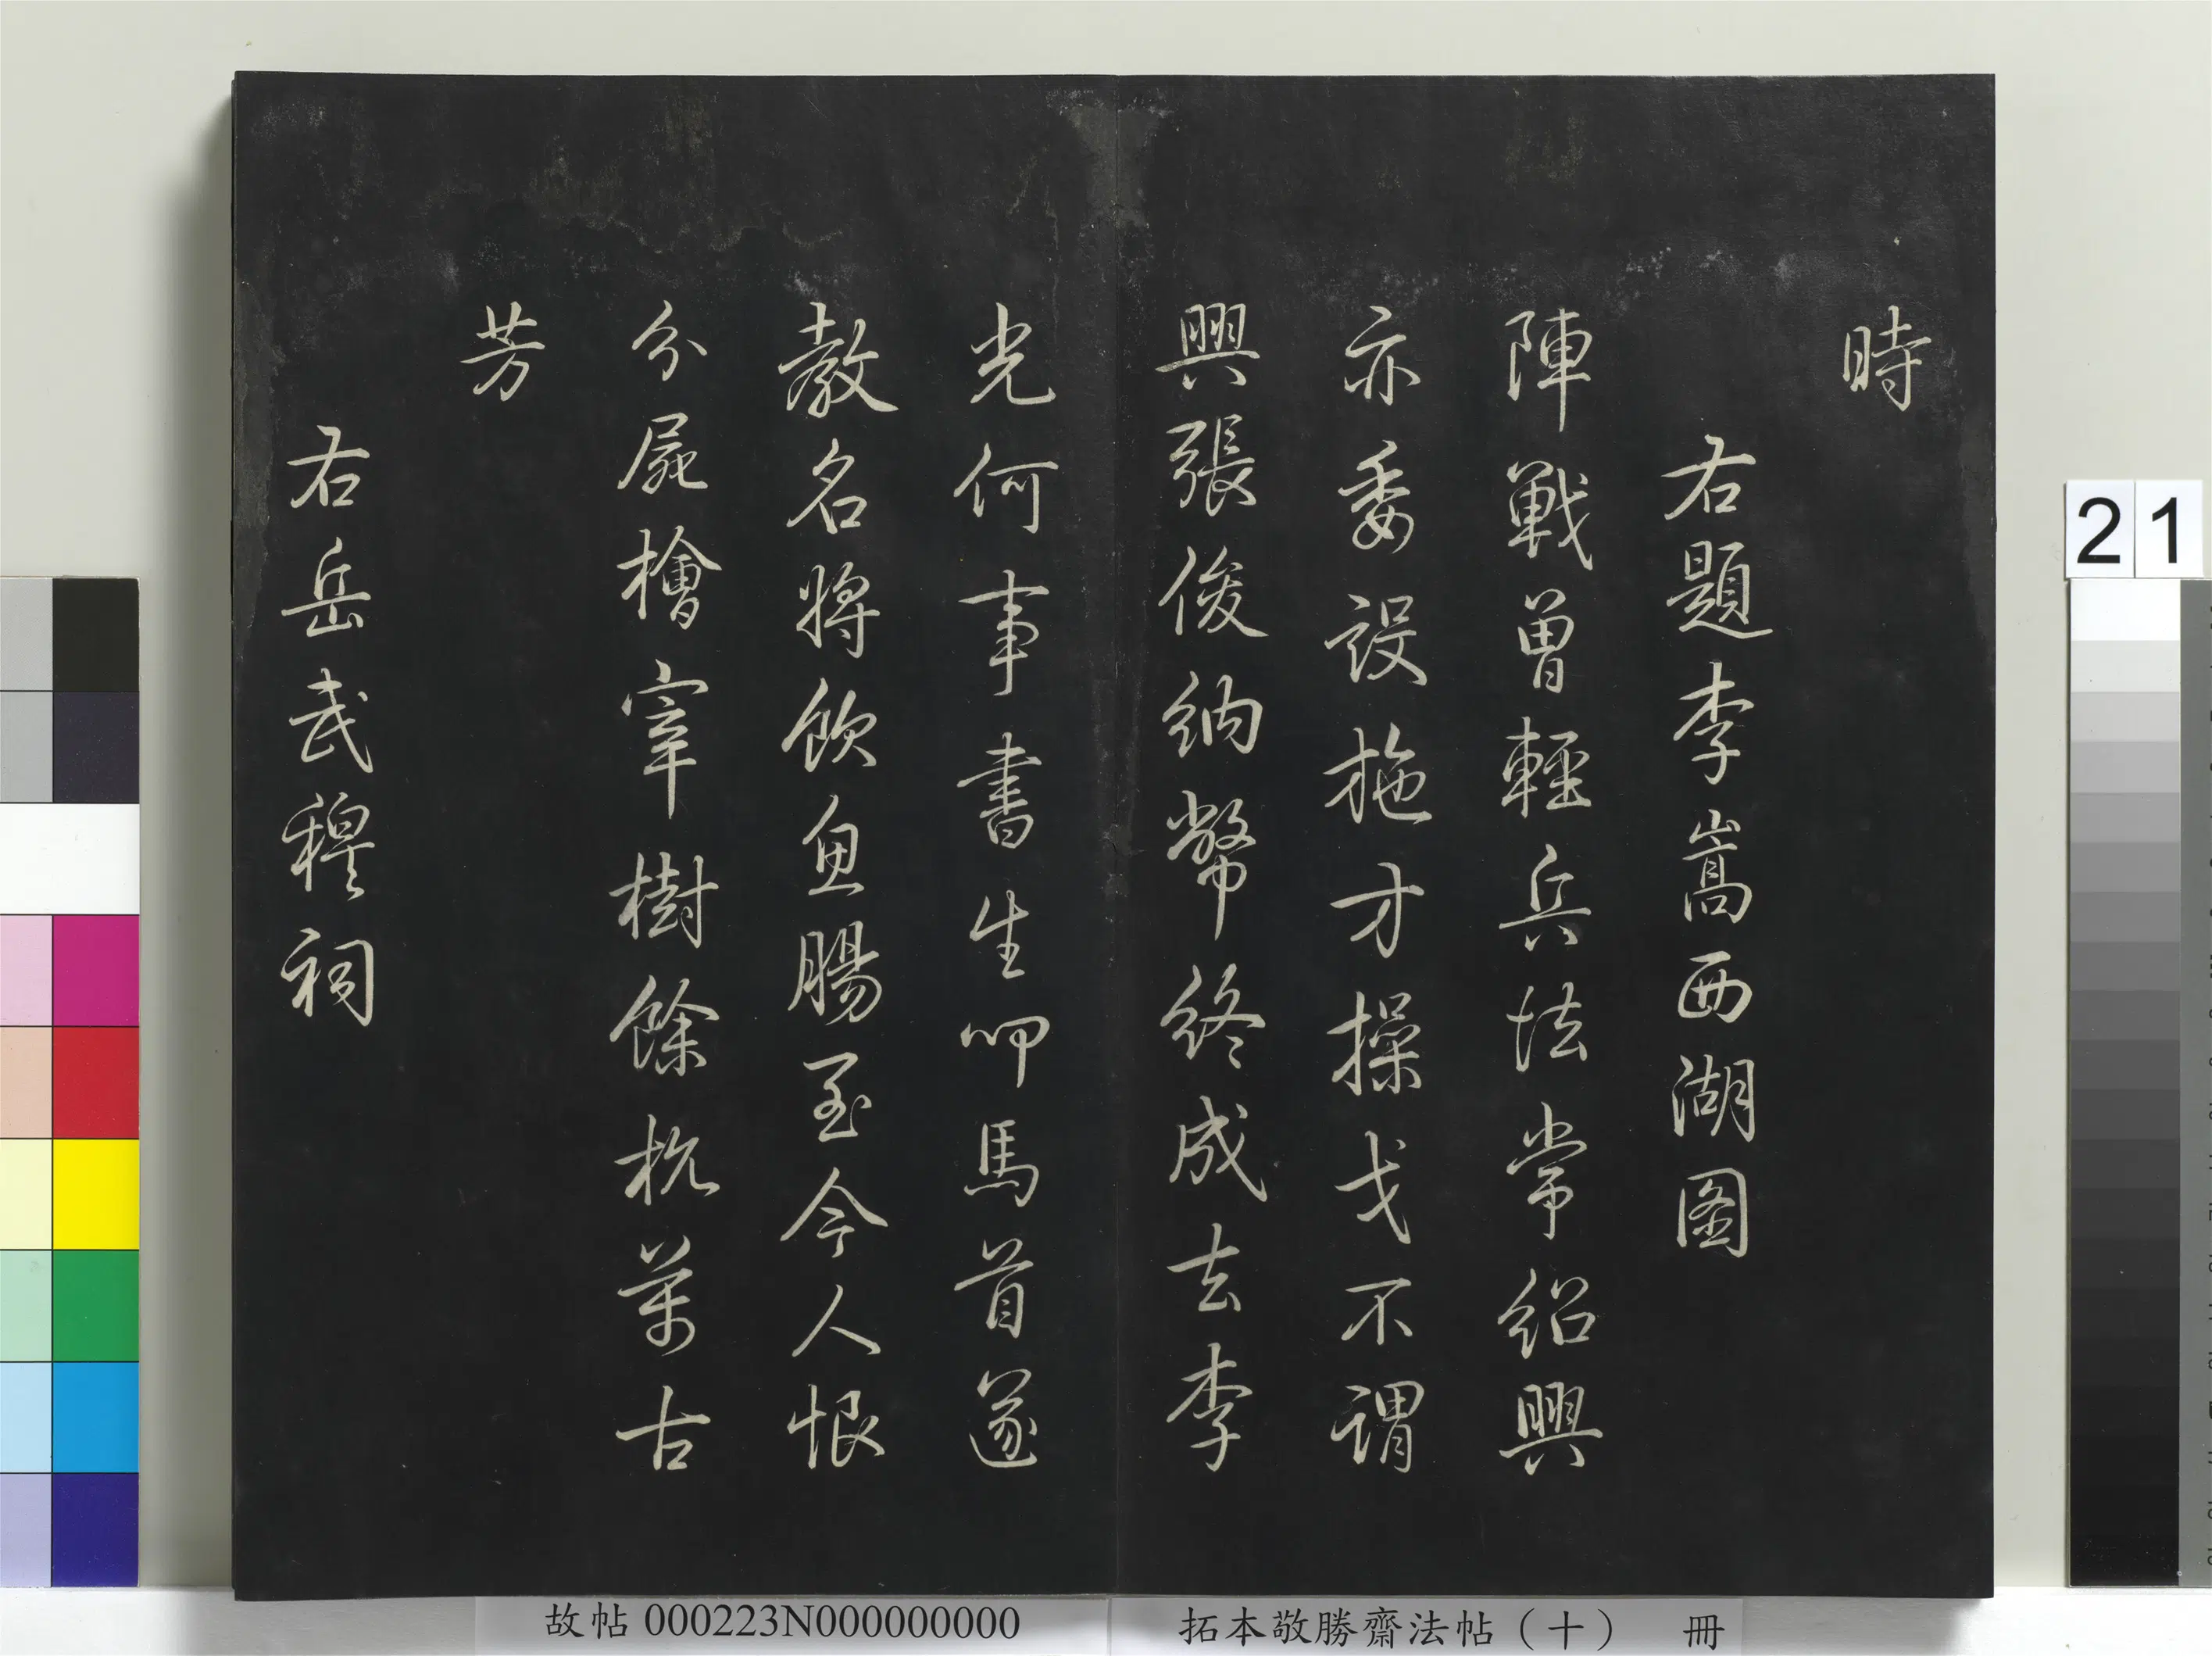 時
右題李嵩西湖圖
陣戰曾輕兵法常紹興
亦委設施才操戈不謂
興張俊納幣終成去李
光何事書生叩馬首遂
教名將飲魚腸至今人恨
分屍檜宰樹餘杭萬古
芳
右岳武穆祠
21
故帖 000223N000000000
拓本敬勝齋法帖（十） 冊